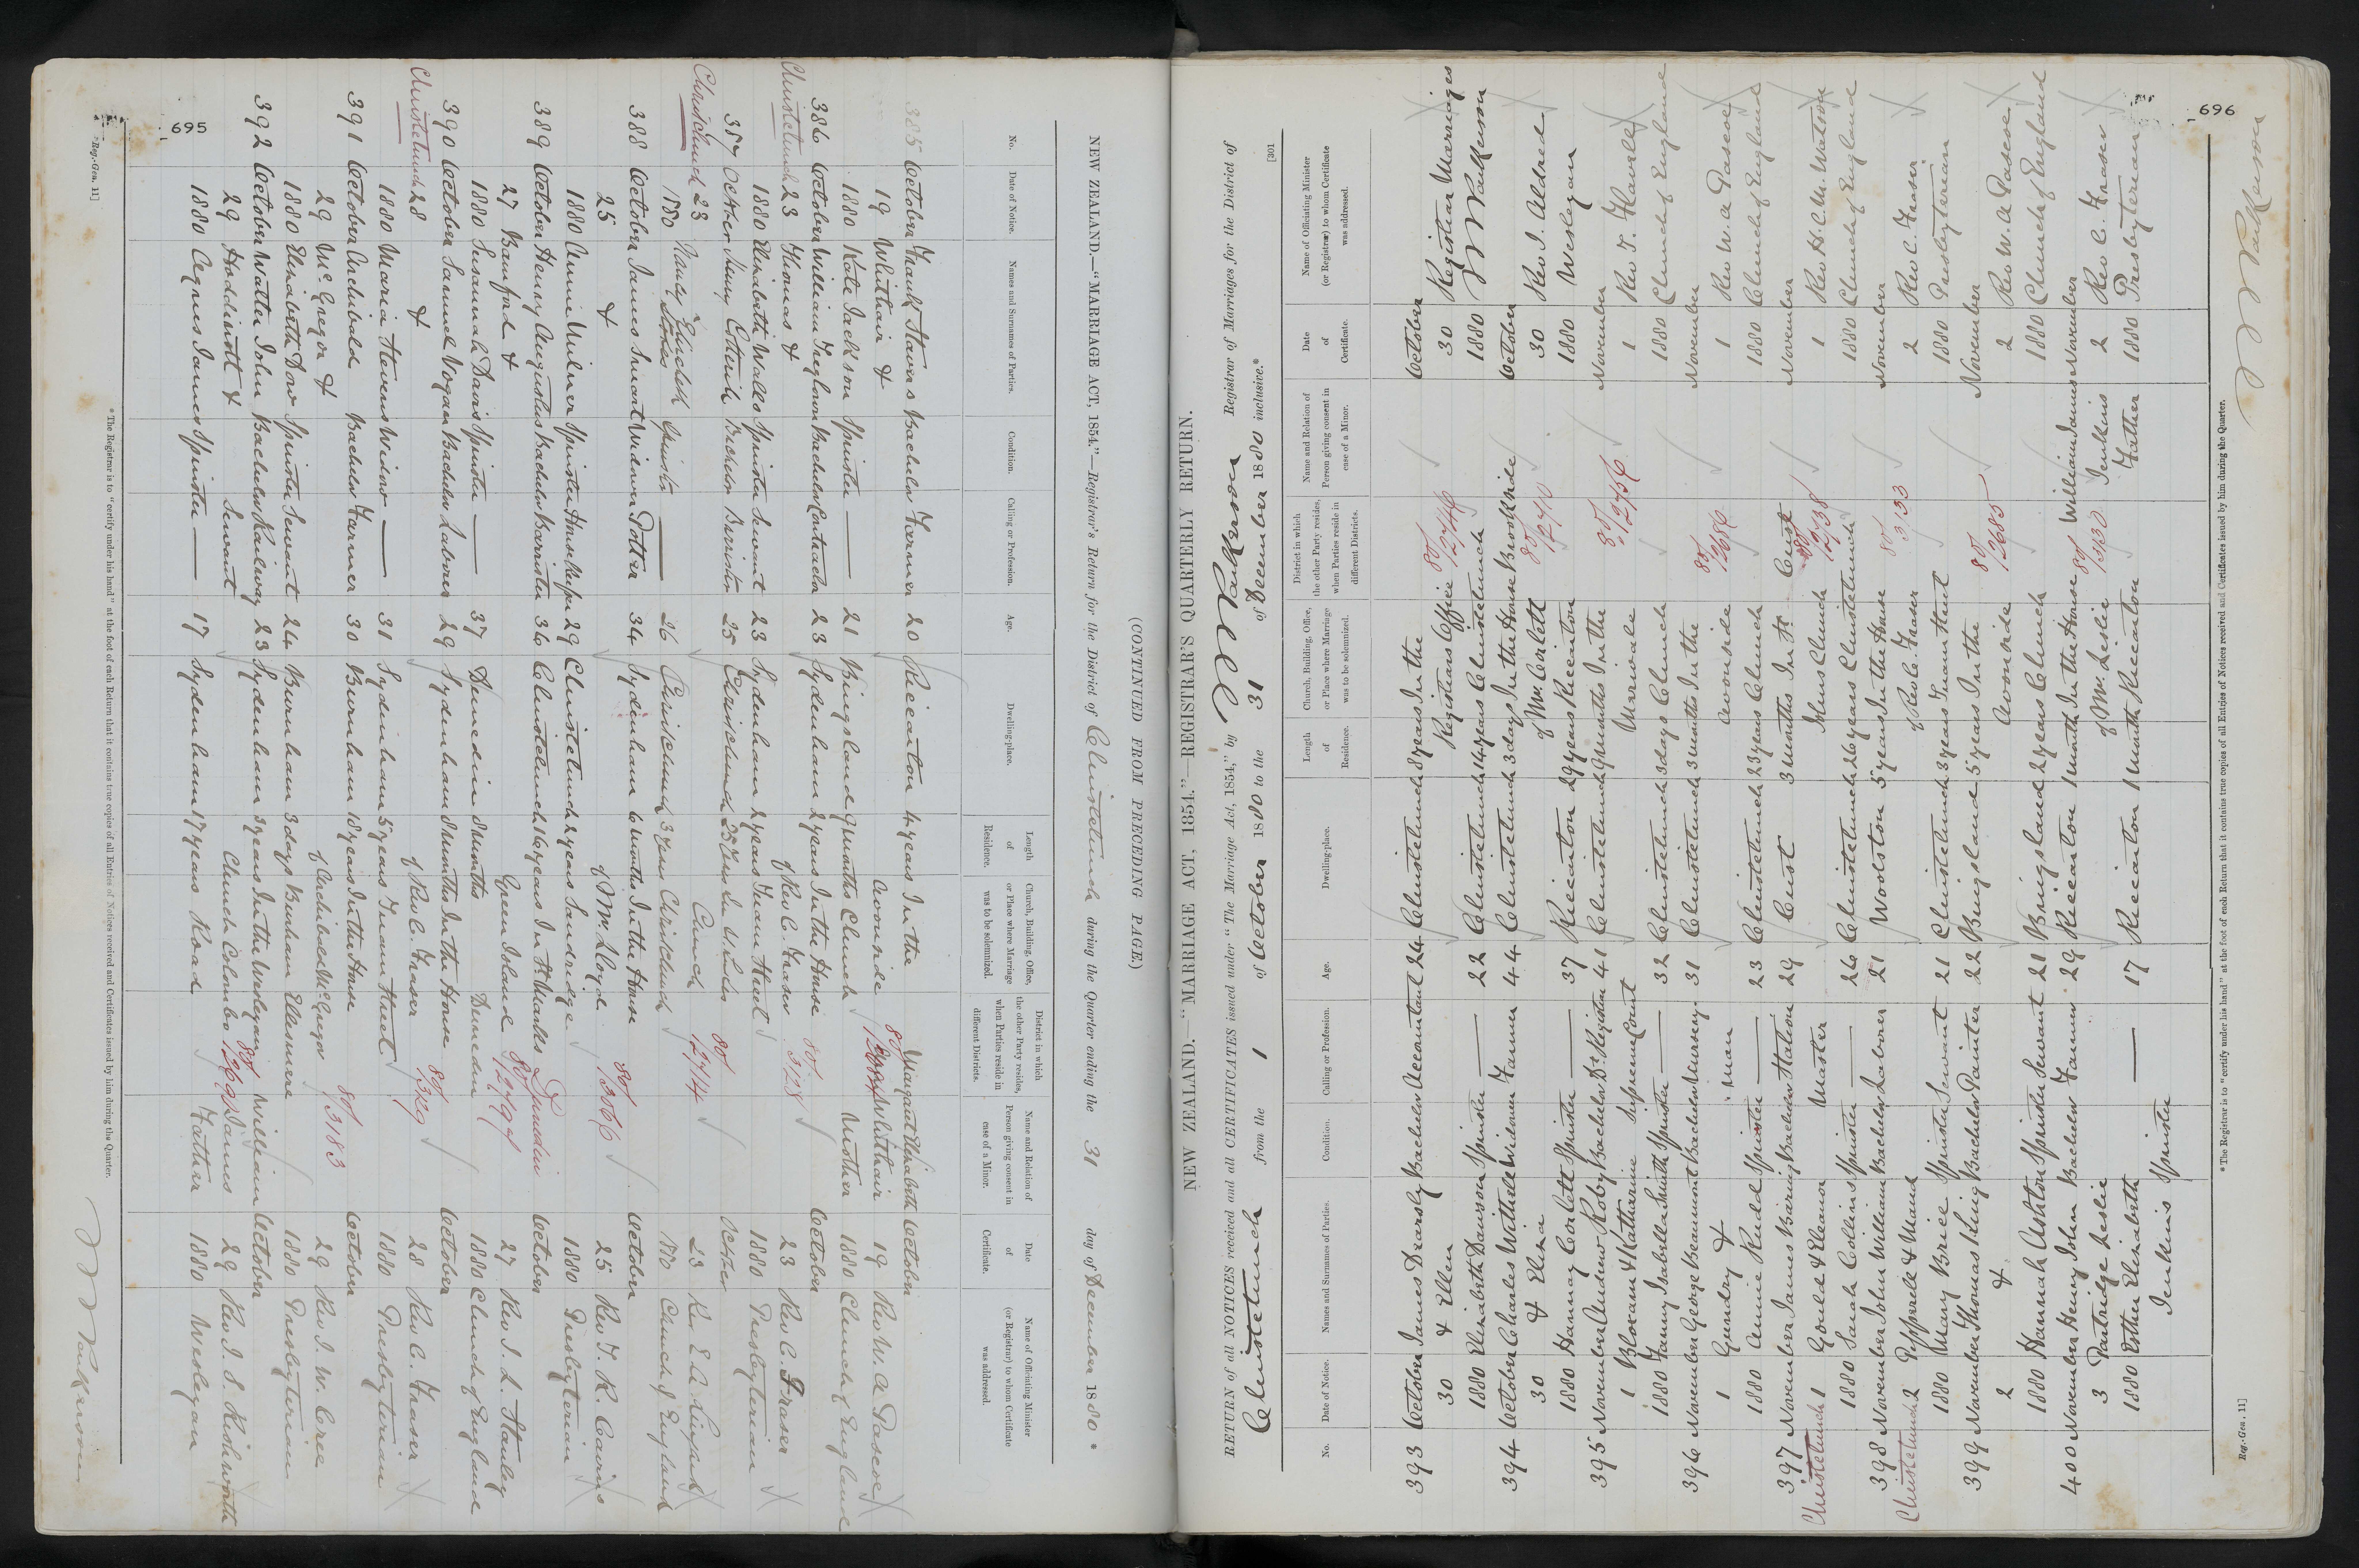 NEW ZEALAND.—"MARRIAGE ACT, 1854."—Registrar's Return for the District of Christchurch during the Quarter ending the 31 day of December 1880 *
(CONTINUED FROM PRECEDING PAGE.)
No. Date of Notice. Names and Surnames of Parties. Condition. Calling or Profession. Age. Dwelling-place. Length of Residence. Church, Building, Office, or Place where Marriage was to be solemnized. District in which the other Party resides, when Parties reside in different Districts. Name and Relation of Person giving consent in case of a Minor. Date of Certificate. Name of Officiating Minister (or Registrar) to whom Certificate was addressed.
385 October Bachelor Farmer 20 Riccarton 4 years In the Margaret Elizabeth October
19 Whithair & Avonside Whithair 19 Rev W. A Pascoe
1880 Kate Jackson Spinster — 21 Bingsland 9 months Church Mother 1880 Church of England
386 October William Bachelor Contractor 23 Sydenham 2 years In the House October
Christchurch 23 Thomas & of Rev C. Fraser 80/3128 23 Rev C. Fraser
1880 Elizabeth Walls Spinster Servant 23 Sydenham 2 years Inam Street 1880 Presbyterian
387 October Henry Cotterill Bachelor Barrister 25 Christchurch 25 Years In S. Lukes October
Christchurch 23 Church 80/2714 23 Rev E A Lingard
1880 Nancy Elizabeth Spinster — 26 Christchurch 3 years Christchurch 1880 Church of England
388 October James Smart Widower Potter 34 Sydenham 6 months In the House October
25 & of Mr. Lloyd 80/3066 25 Rev J. R. Cairns
1880 Annie Milner Spinster Housekeeper 29 Christchurch 2 years Sandridge 1880 Presbyterian
389 October Henry Augustus Bachelor Barrister 36 Christchurch 16 years In St Marks Dunedin October
27 Bamford & Green Island 27 Rev J. L. Stanley
1880 Susannah Davis Spinster — 37 Dunedin 8 months Dunedin 1880 Church of England
390 October Samuel Vogan Bachelor Laborer 29 Sydenham 8 months In the House October
Christchurch 28 & of Rev C. Fraser 28 Rev C. Fraser
1880 Maria Stevens Widow — 31 Sydenham 5 years Inam Street 1880 Presbyterian
391 October Archibald Bachelor Farmer 30 Burnham 18 years In the House October
29 Mc Gregor & of Archibald McGregor 80/3183 29 Rev J. W. Cree
1880 Elizabeth Spinster Servant 24 Burnham 3 days Burnham Ellesmere 1880 Presbyterian
392 October Walter John Bachelor Railway 23 Sydenham 3 years In the Wesleyan William October
29 Hoddinott & Servant Church Colombo James 29 Rev J. S. Rishworth
1880 Agnes James Spinster — 17 Sydenham 17 years Road Father 1880 Wesleyan
* The Registrar is to "certify under his hand" at the foot of each Return that it contains true copies of all Entries of Notices received and Certificates issued by him during the Quarter.
Reg.-Gen. 11]
695
[301
NEW ZEALAND.—"MARRIAGE ACT, 1854."—REGISTRAR'S QUARTERLY RETURN.
RETURN of all NOTICES received and all CERTIFICATES issued under "The Marriage Act, 1854," by Registrar of Marriages for the District of
Christchurch from the 1 of October 1880 to the 31 of December 1880 inclusive.*
No. Date of Notice. Names and Surnames of Parties. Condition. Calling or Profession. Age. Dwelling-place. Length of Residence. Church, Building, Office, or Place where Marriage was to be solemnized. District in which the other Party resides, when Parties reside in different Districts. Name and Relation of Person giving consent in case of a Minor. Date of Certificate. Name of Officiating Minister (or Registrar) to whom Certificate was addressed.
393 October James Dearsly Bachelor Accountant 24 Christchurch 8 years In the October
30 & Ellen Registrars Office 80/2746 30 Registrar Marriages
1880 Elizabeth Dawson Spinster — 22 Christchurch 14 years Christchurch 1880
394 October Charles Withell Widower Farmer 44 Christchurch 3 days In the House Brookside October
30 & Eliza of Mr. Corlett 80/2740 30 Rev J. Aldred
1880 Hannay Corlett Spinster — 37 Riccarton 29 years Riccarton 1880 Wesleyan
395 November Andrew Roby Bachelor Dt. Registrar 41 Christchurch 9 months In the November
1 Bloxam & Katharine Supreme Court Merivale 1 Rev T. Flavell
1880 Fanny Isabella Smith Spinster — 32 Christchurch 3 days Church 1880 Church of England
396 November George Beaumont Bachelor Nursery- 31 Christchurch 3 months In the November
1 Gundry & man Avonside 80/2686 1 Rev W. A Pascoe
1880 Annie Rudd Spinster — 23 Christchurch 23 years Church 1880 Church of England
397 November James Baring Bachelor Station 29 Cust 3 months In St. Cust November
Christchurch 1 Gould & Eleanor Master Johns Church 80/2738 1 Rev H. C. M. Watson
1880 Sarah Collins Spinster — 26 Christchurch 26 years Christchurch 1880 Church of England
398 November John William Bachelor Laborer 21 Woolston 5 years In the House November
Christchurch 2 Pepperell & Maud of Rev C. Fraser 80/3133 2 Rev C. Fraser
1880 Mary Brice Spinster Servant 21 Christchurch 3 years Inam Street 1880 Presbyterian
399 November Thomas King Bachelor Painter 22 Bingsland 5 years In the November
2 & Avonside 80/2685 2 Rev W. A Pascoe
1880 Hannah Ashton Spinster Servant 21 Bingsland 2 years Church 1880 Church of England
400 November Henry John Bachelor Farmer 29 Riccarton 1 month In the House William James November
3 Partridge Leslie of Mr. Leslie 80/3130 Jenkins 2 Rev C. Fraser
1880 Esther Elizabeth — 17 Riccarton 1 month Riccarton Father 1880 Presbyterian
Jenkins Spinster
* The Registrar is to "certify under his hand" at the foot of each Return that it contains true copies of all Entries of Notices received and Certificates issued by him during the Quarter.
Reg.-Gen. 11]
696